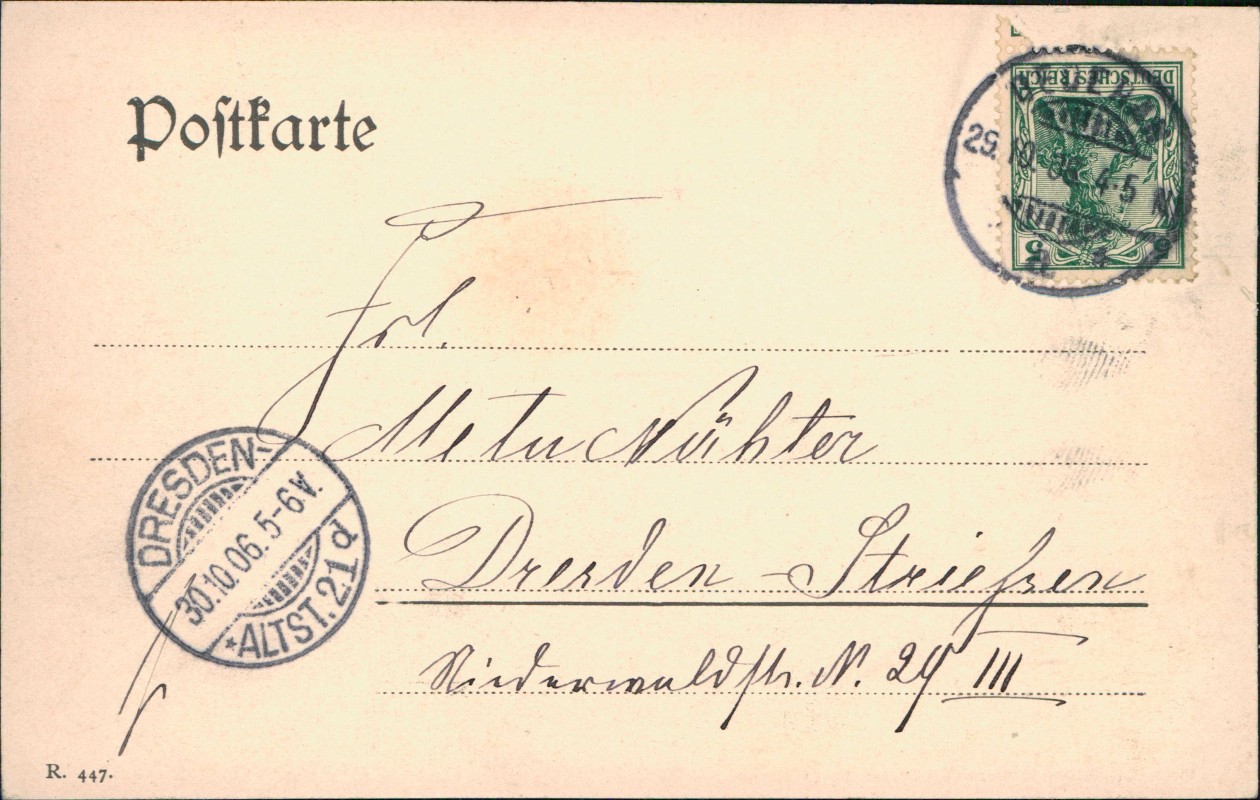 Postkarte
DEUTSCHES REICH
29. 10. 06. 4-5 N
5 5
a *
Frl.
Meta Nähter
Dresden - Strießen
Niederwaldstr. N. 29 III
DRESDEN-
30.10.06. 5-6 V.
*ALTST. 21 d
R. 447.